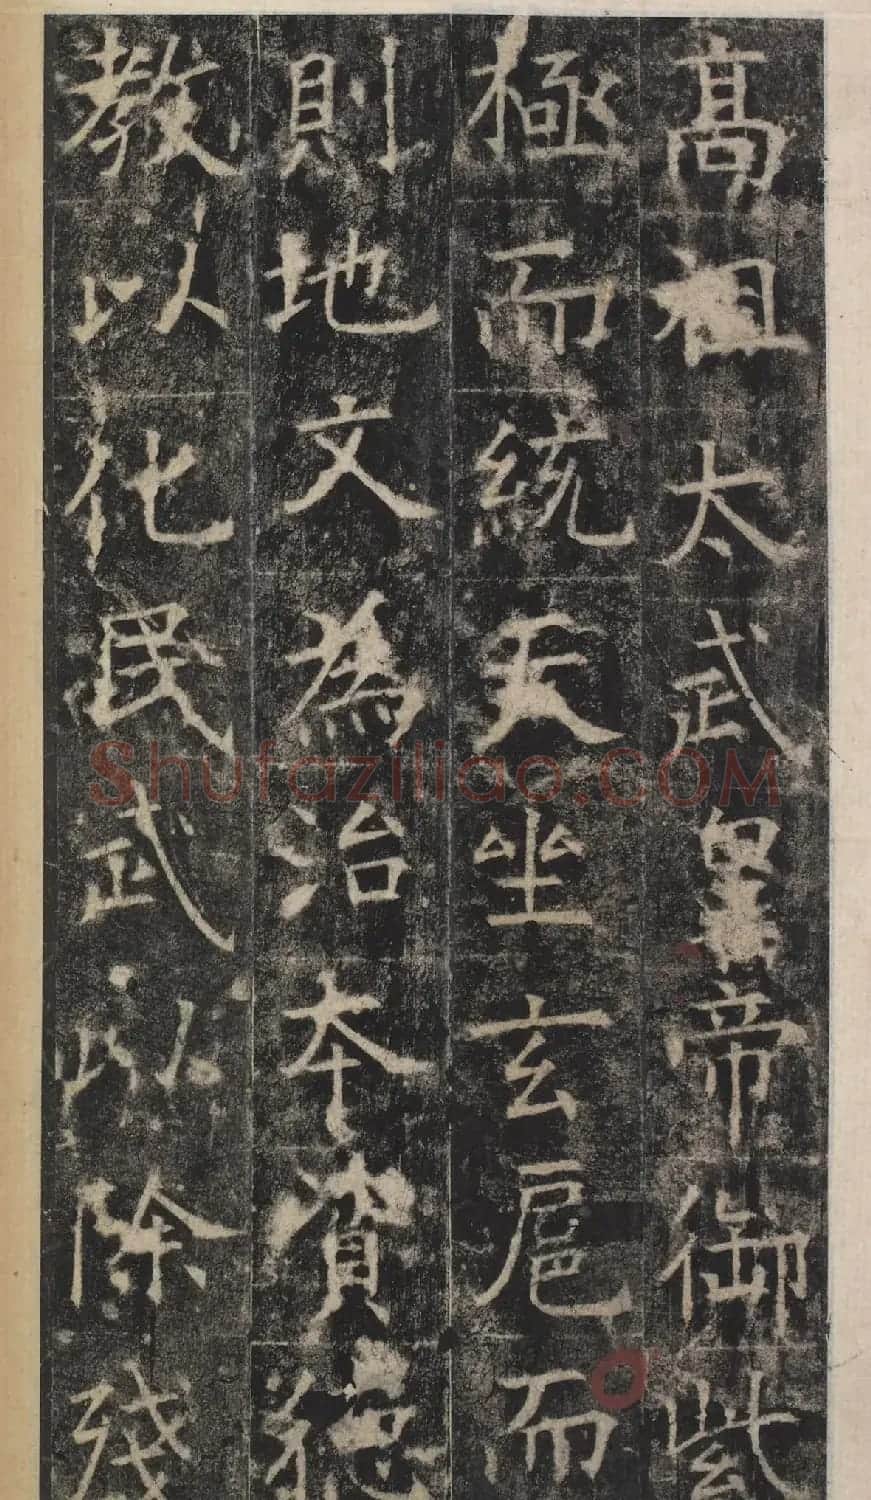 高祖太武皇帝御紫
極而統天坐玄扈而
則地文為治本資
教以化民武以除殘
Shufaziliao.COM